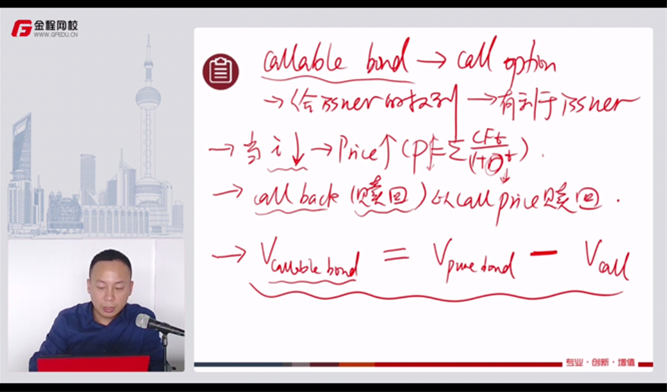 金程网校
WWW.GFEDU.CN
callable bond → call option
→ 给issuer的权利 → 有利于issuer
→ 当 i ↓ → Price↑ (P↑=Σ CFt/(1+i)^t).
→ call back (赎回) 以call price赎回.
→ Vcallable bond = Vpure bond − Vcall
专业·创新·增值